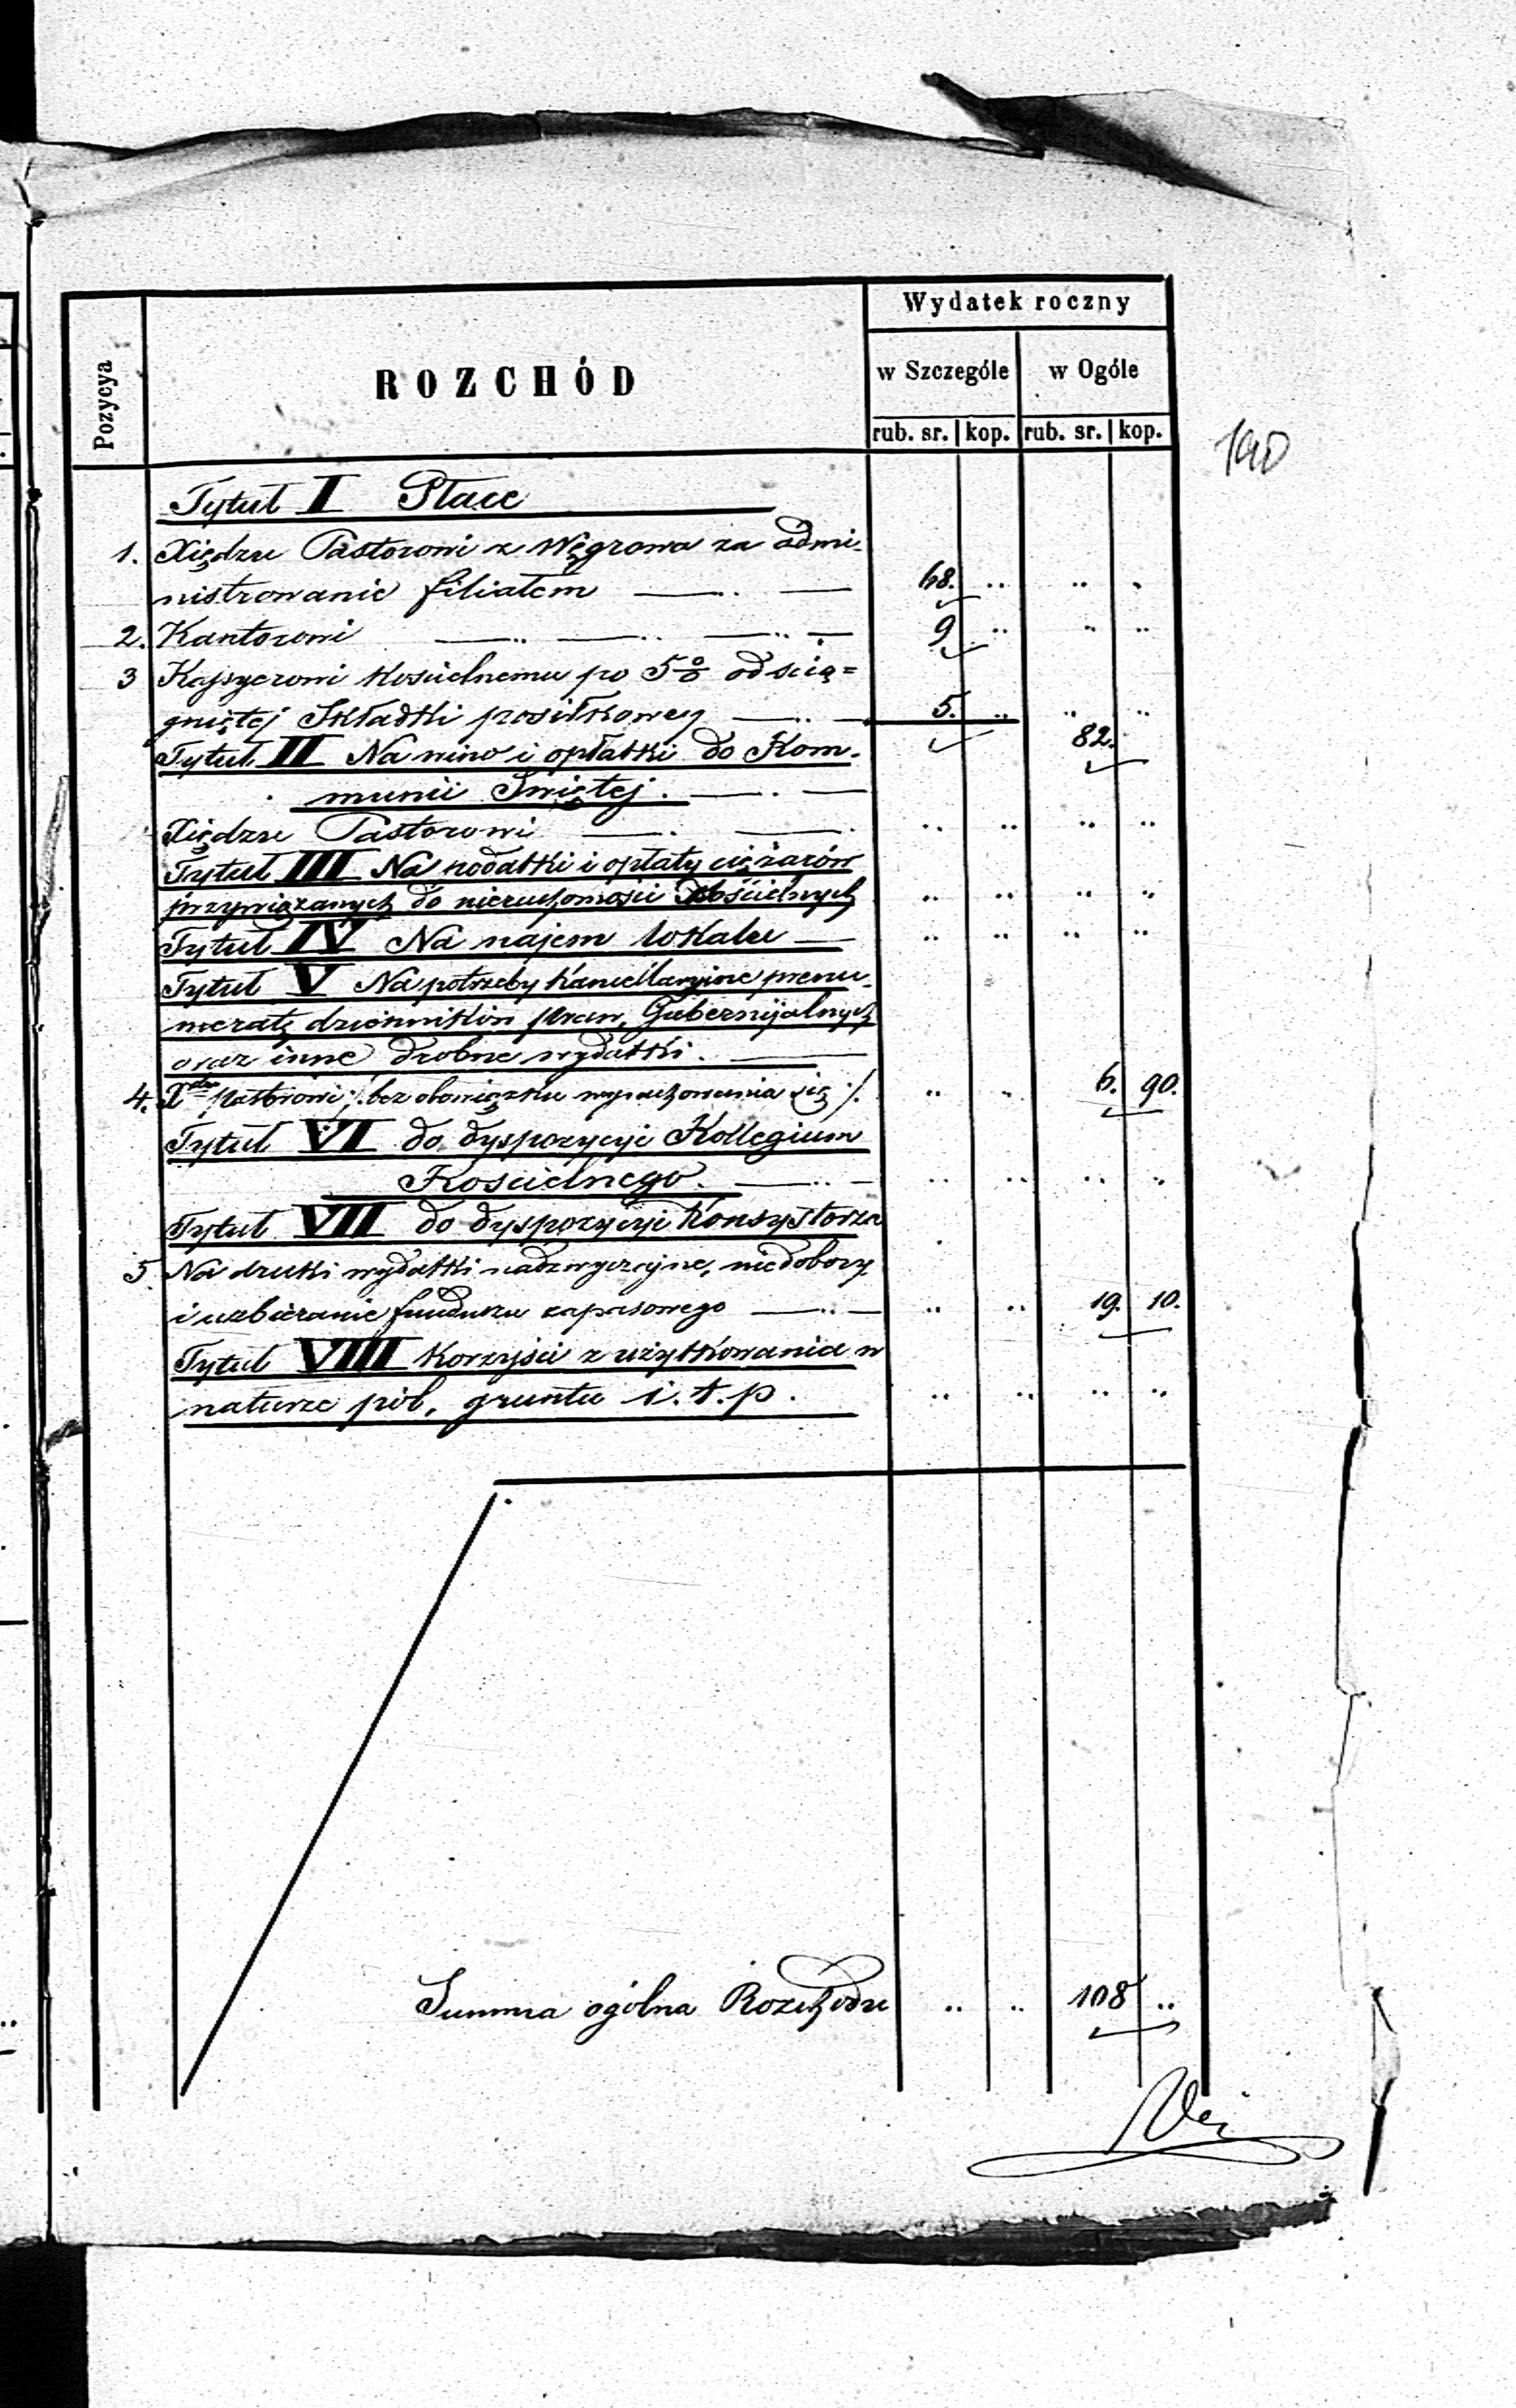 Wydatek roczny
Pozycya
ROZCHÓD
w Szczególe
w Ogóle
rub. sr. kop. rub. sr. kop.
190
Tytuł I Płace
1. Xiędzu Pastorowi z Węgrowa za admi-
nistrowanie filiałem 68. .. .. ..
2. Kantorowi 9 .. .. ..
3 Kassyerowi Kościelnemu po 5% od ścią=
gniętej Składki posiłkowey 5. .. .. ..
82.
Tytuł II Na wino i opłatki do Kom-
munii Świętej. .. .. .. ..
Xiędzu Pastorowi .. .. .. ..
Tytuł III Na podatki i opłaty ciężarów
przywiązanych do nieruchomości Kościelnych .. .. .. ..
Tytuł IV Na najem lokalu .. .. .. ..
Tytuł V Na potrzeby kancellaryjne prenu-
meratę dzienników praw, Gubernijalnych
oraz inne drobne wydatki.
4. Xdzu Pastorowi /: bez obowiązku wyrachowania się :/ .. .. 6. 90.
Tytuł VI do dyspozycyi Kollegium
Kościelnego. .. .. .. ..
Tytuł VII do dyspozycyi Konsystorza
5 Na druki wydatki nadzwyczajne, niedobory
i uzbieranie funduszu zapasowego .. .. 19. 10.
Tytuł VIII Korzyści z użytkowania w
naturze pól, gruntu i. t. p. .. .. .. ..
Summa ogólna Rozchodu .. .. 108 ..